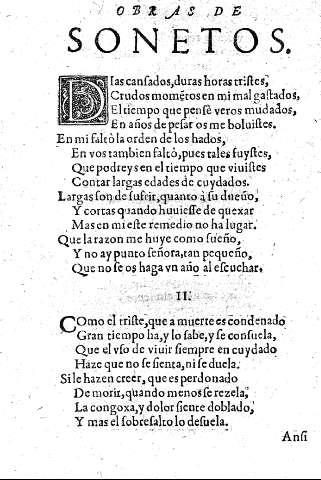 OBRAS DE
SONETOS.
Dias cansados, duras horas tristes,
Crudos momẽtos en mi mal gastados,
El tiempo que pensè veros mudados,
En años de pesar os me boluistes.
En mi faltò la orden de los hados,
En vos tambien faltò, pues tales fuystes,
Que podreys en el tiempo que viuistes
Contar largas edades de cuydados.
Largas son de sufrir, quanto à su dueño,
Y cortas quando huuiesse de quexar
Mas en mi este remedio no ha lugar.
Que la razon me huye como sueño,
Y no ay punto señora, tan pequeño,
Que no se os haga vn año al escuchar.
II.
Como el triste, que a muerte es cõdenado
Gran tiempo ha, y lo sabe, y se consuela,
Que el vso de viuir siempre en cuydado
Haze que no se sienta, ni se duela.
Si le hazen creer, que es perdonado
De morir, quando menos se rezela,
La congoxa, y dolor siente doblado,
Y mas el sobresalto lo desuela.
Ansi